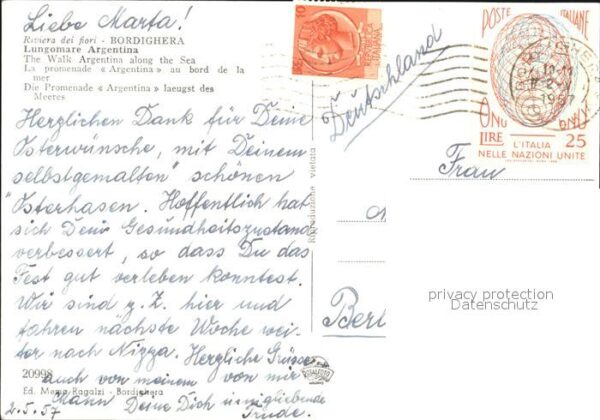 Liebe Marta!
Riviera dei fiori - BORDIGHERA
Lungomare Argentina
The Walk Argentina along the Sea
La promenade « Argentina » au bord de la
mer
Die Promenade « Argentina » laeugst des
Meeres
Herzlichen Dank für Deine
Osterwünsche, mit Deinem
"selbstgemalten" schönen
Osterhasen. Hoffentlich hat
sich Dein Gesundheitszustand
verbessert, so dass Du das
Fest gut verleben konntest.
Wir sind z. Z. hier und
fahren nächste Woche wei-
ter nach Nizza. Herzliche Grüsse
auch von meinem von mir
Mann Deine Dich innigliebende
Trude.
2.5.57
20998
Ed. Ragalzi - Bordighera
Riproduzione vietata
Deutschland
POSTE ITALIANE
ONU
LIRE 25
L'ITALIA
NELLE NAZIONI UNITE
1957
Frau
Berl
privacy protection
Datenschutz